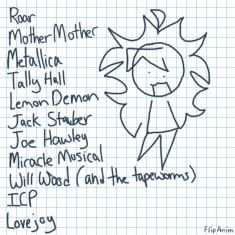 Roar
Mother Mother
Metallica
Tally Hall
Lemon Demon
Jack Stauber
Joe Hawley
Miracle Musical
Will Wood (and the tapeworms)
ICP
Lovejoy
FlipAnim